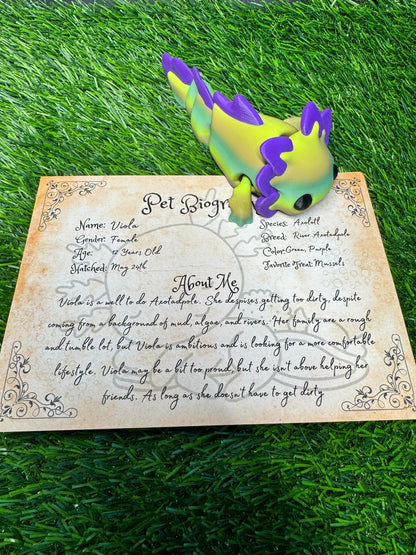 Pet Biogr
Name: Viola
Species: Axolotl
Gender: Female
Breed: River Axotadpole
Age: Years Old
Color: Green, Purple
Hatched: May 24th
Favorite Treat: Mussels
About Me
Viola is a well to do Axotadpole. She despises getting too dirty, despite
coming from a background of mud, algae, and rivers. Her family are a rough
and tumble lot, but Viola is ambitious and is looking for a more comfortable
lifestyle. Viola may be a bit too proud, but she isn't above helping her
friends. As long as she doesn't have to get dirty